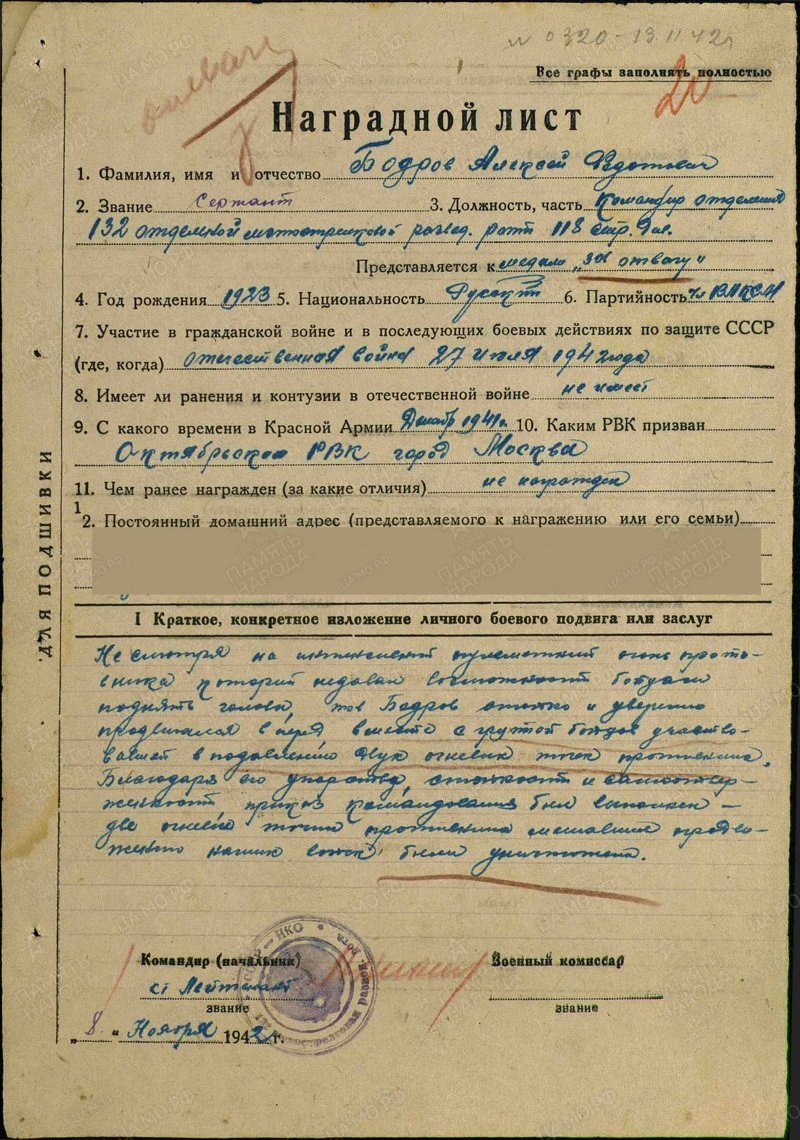 № 0320 - 13.11.42г
Все графы заполнять полностью
20
Наградной лист
1. Фамилия, имя и отчество Бодров Алексей Федотович
2. Звание Сержант 3. Должность, часть Командир отделения
132 отдельной мотострелковой развед. роты 118 стр. див.
Представляется к медали „за отвагу"
4. Год рождения 1923 5. Национальность Русский 6. Партийность чл ВЛКСМ
7. Участие в гражданской войне и в последующих боевых действиях по защите СССР
(где, когда) отечественная война 27 июля 1942 года
8. Имеет ли ранения и контузии в отечественной войне не имеет
9. С какого времени в Красной Армии Декабр 1941г. 10. Каким РВК призван
Октябрьском РВК город Москва
11. Чем ранее награжден (за какие отличия) не награжден
12. Постоянный домашний адрес (представляемого к награжению или его семьи)
ДЛЯ ПОДШИВКИ
I Краткое, конкретное изложение личного боевого подвига или заслуг
Не смотря на интенсивный пулеметный огонь проти-
вника который недавал возможности бойцам
поднять головы, тов Бодров стойко и уверенно
продвигался вперед вместе с группой бойцов участво-
вавшей в подавлению двух огневых точек противника.
Благодаря его упорства, стойкости и самоотвер-
женности приказ командования был выполнен –
две огневые точки противника мешавшие продви-
жению наших войск были уничтожены.
Командир (начальник) Военный комиссар
ст Лейтенант
звание звание
„8" Ноября 1942 г.
НКО